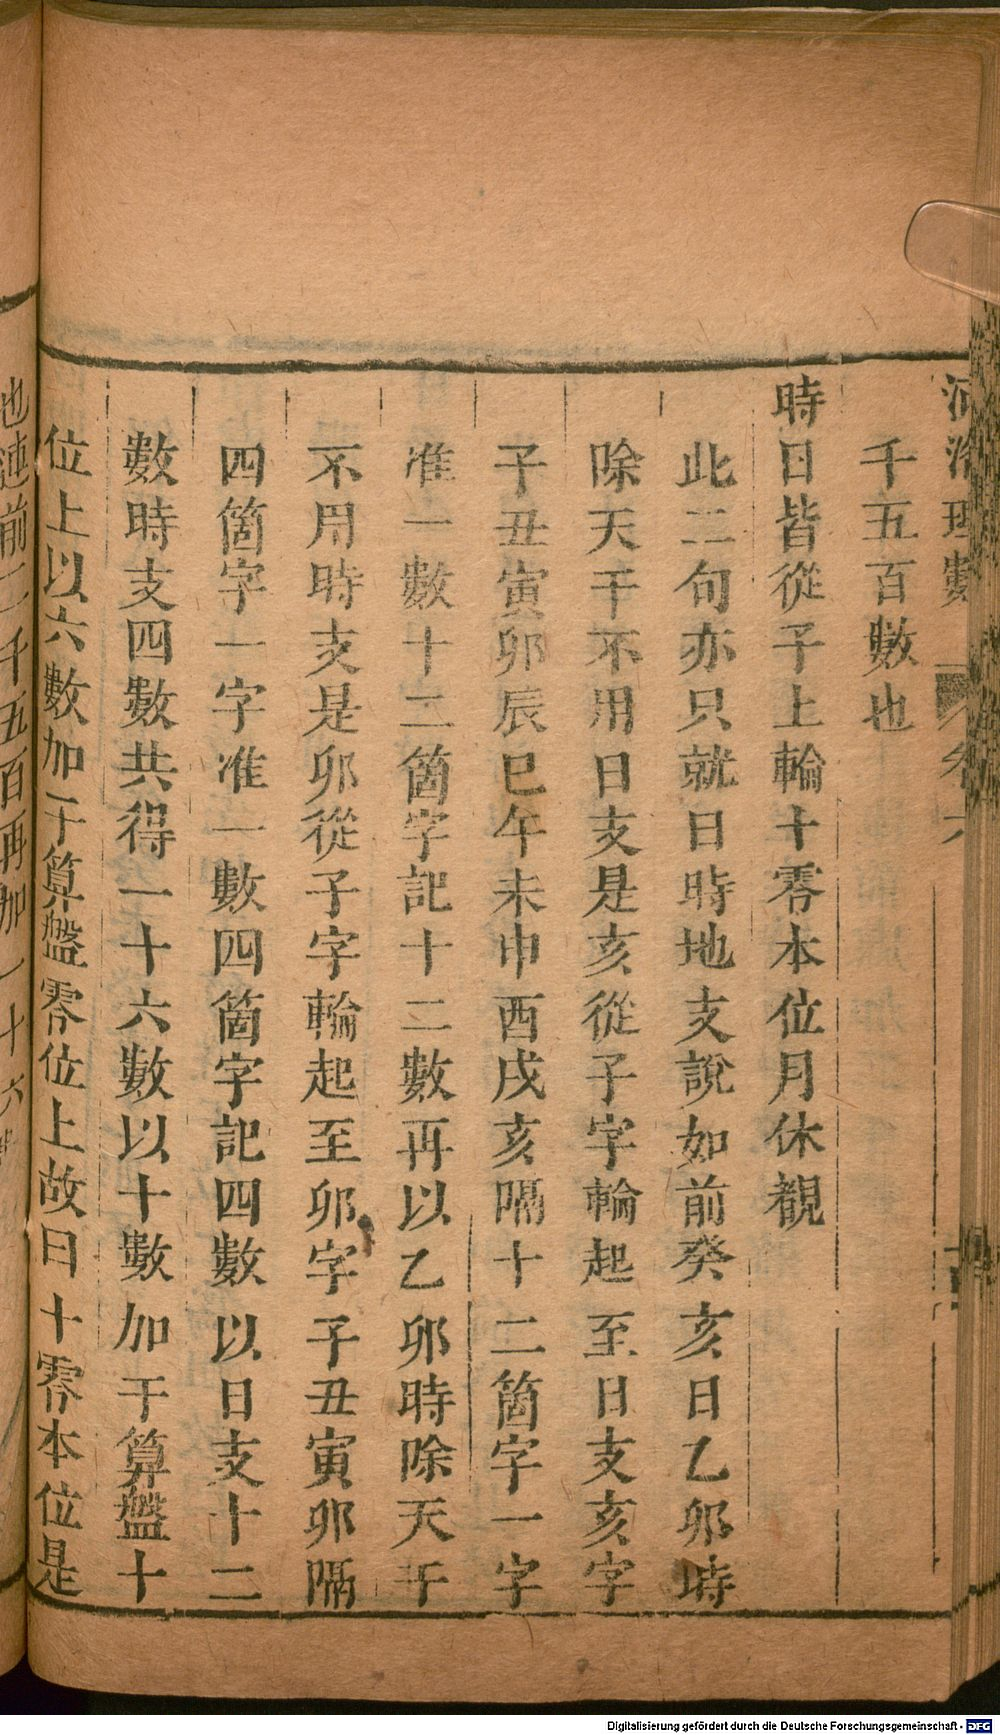 千五百數也
時日皆從子上輪十零本位月休覩
此二句亦只就日時地支說如前癸亥日乙卯時
除天干不用日支是亥從子字輪起至日支亥字
子丑寅卯辰巳午未申酉戌亥隔十二箇字一字
准一數十二箇字記十二數再以乙卯時除天干
不用時支是卯從子字輪起至卯字子丑寅卯隔
四箇字一字准一數四箇字記四數以日支十二
數時支四數共得一十六數以十數加于算盤十
位上以六數加于算盤零位上故曰十零本位是
也連前二千五百再加一十六
Digitalisierung gefördert durch die Deutsche Forschungsgemeinschaft - DFG